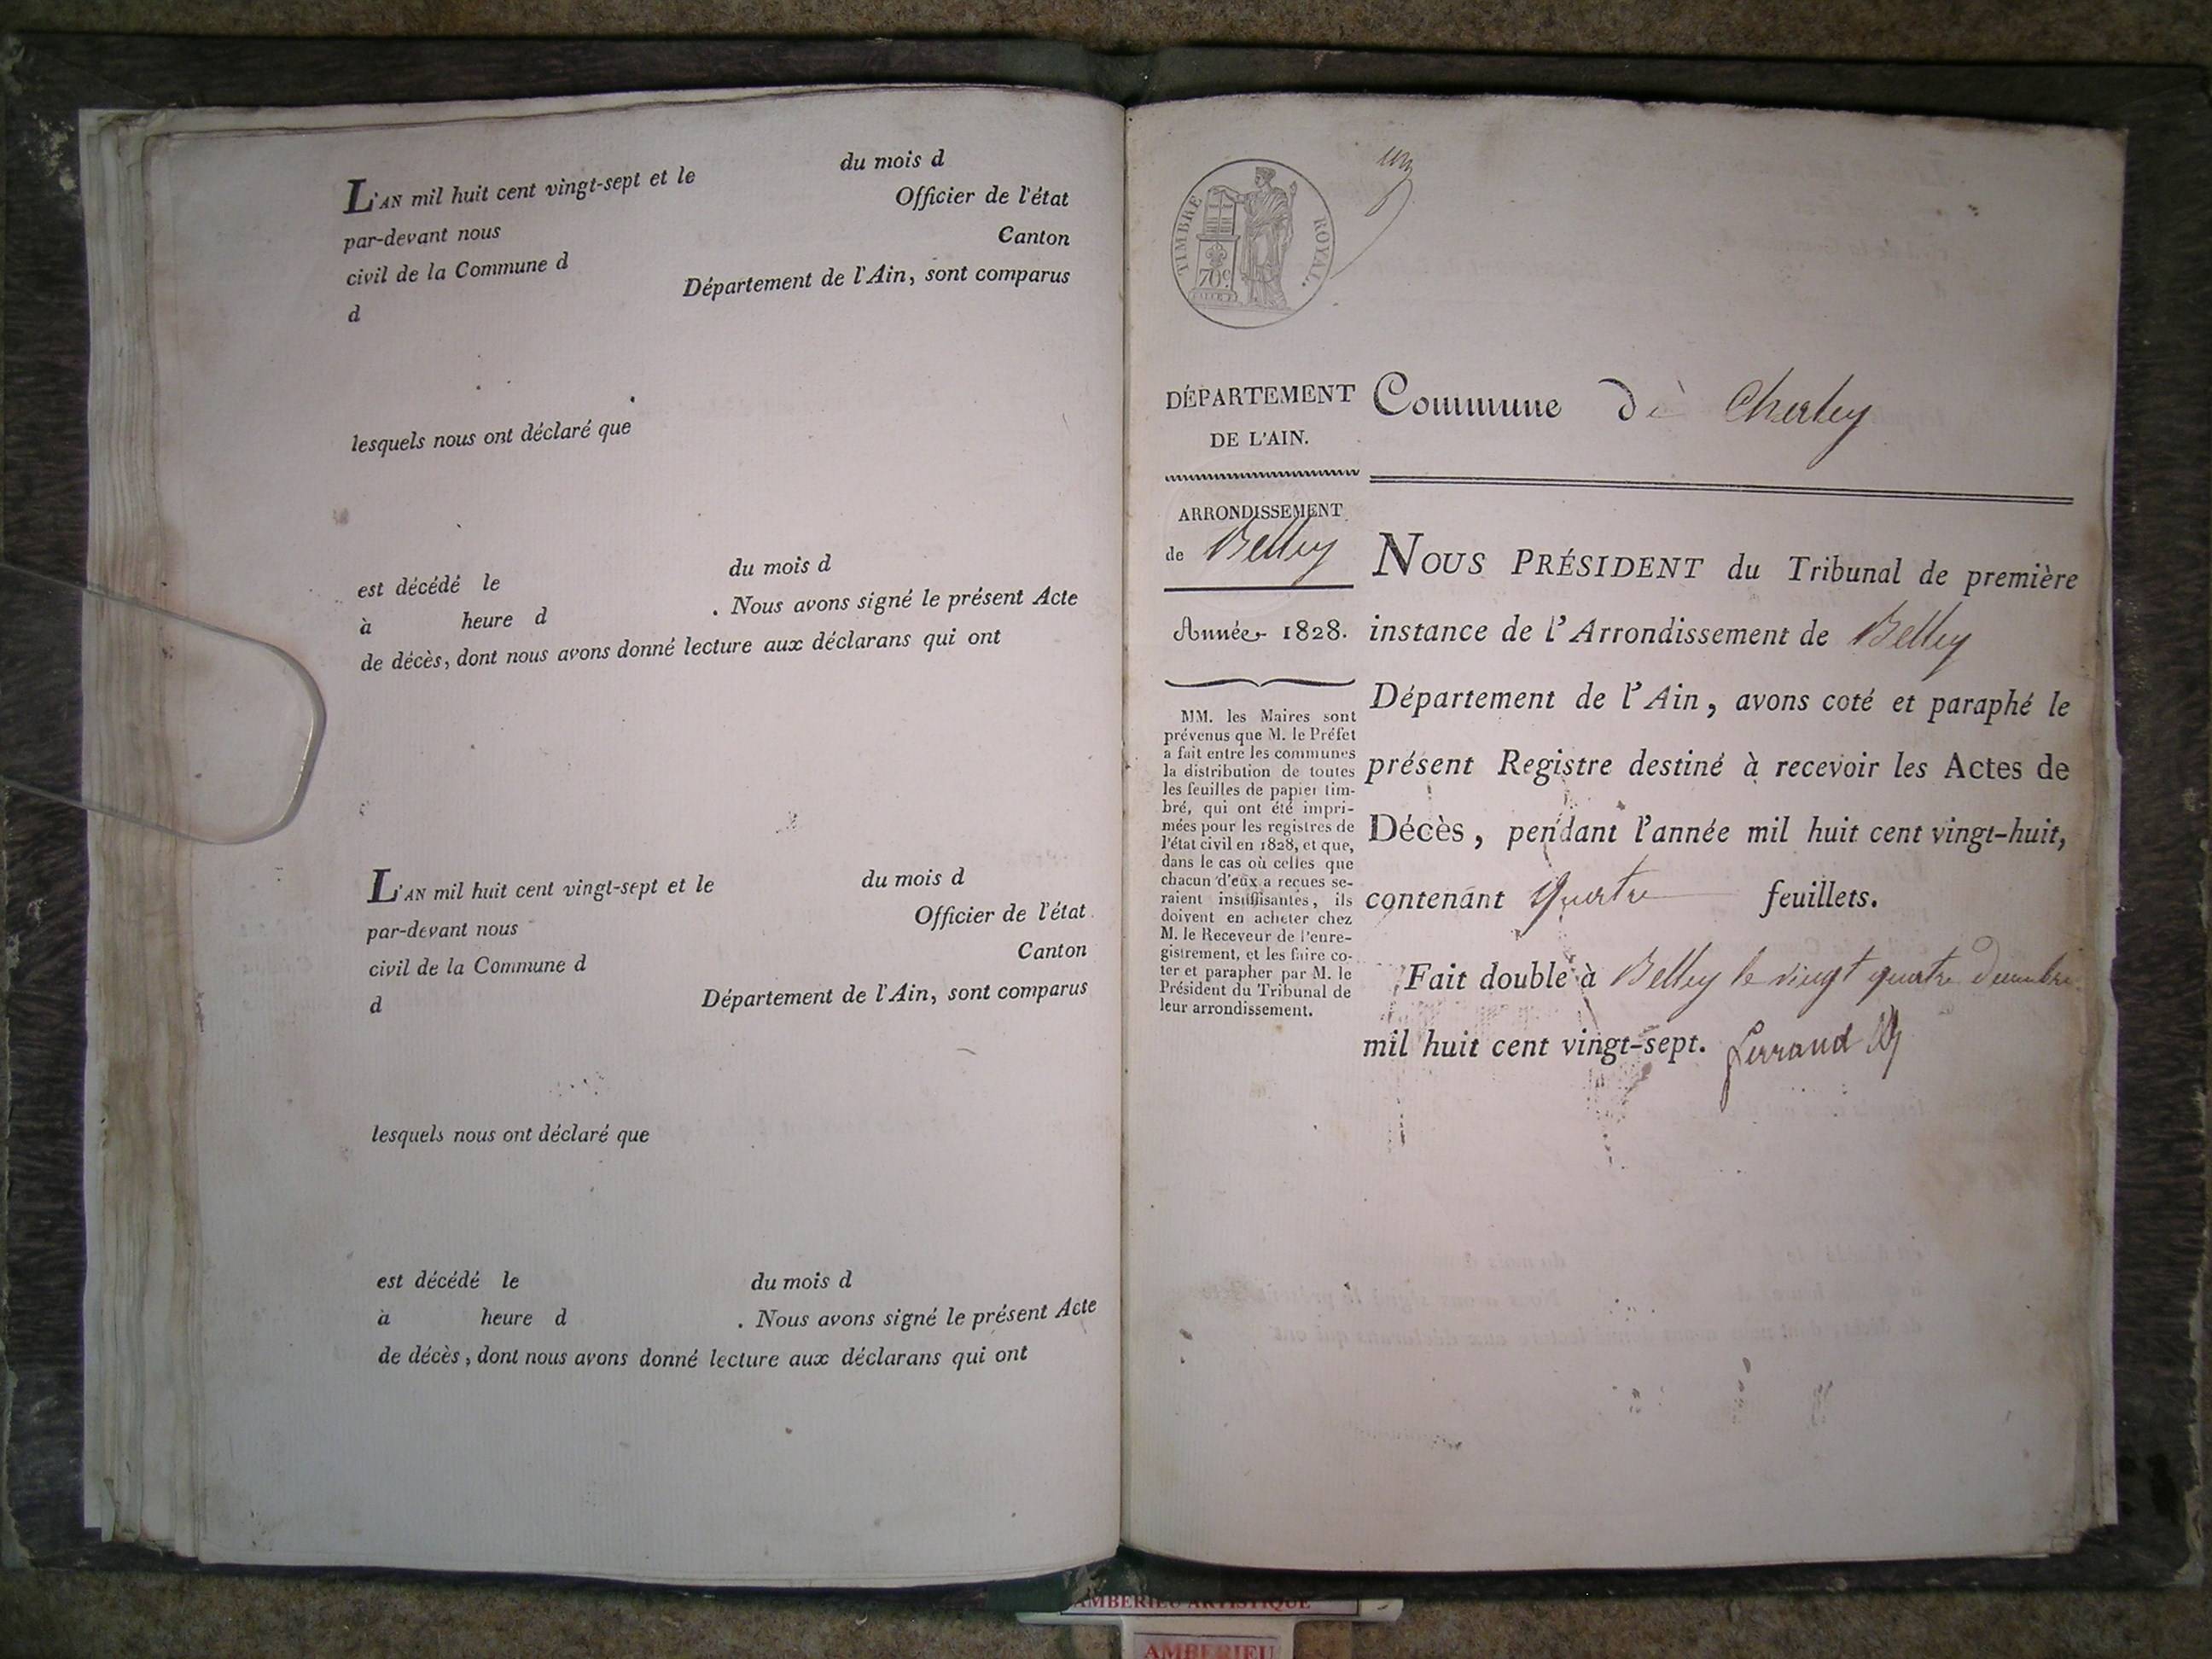 L'AN mil huit cent vingt-sept et le du mois d
par-devant nous Officier de l'état
civil de la Commune d Canton
d Département de l'Ain, sont comparus
lesquels nous ont déclaré que
est décédé le du mois d
à heure d . Nous avons signé le présent Acte
de décès, dont nous avons donné lecture aux déclarans qui ont
L'AN mil huit cent vingt-sept et le du mois d
par-devant nous Officier de l'état
civil de la Commune d Canton
d Département de l'Ain, sont comparus
lesquels nous ont déclaré que
est décédé le du mois d
à heure d . Nous avons signé le présent Acte
de décès, dont nous avons donné lecture aux déclarans qui ont
un
TIMBRE ROYAL.
70c.
DÉPARTEMENT
DE L'AIN.
ARRONDISSEMENT
de Belley
Année 1828.
MM. les Maires sont
prévenus que M. le Préfet
a fait entre les communes
la distribution de toutes
les feuilles de papier tim-
bré, qui ont été impri-
mées pour les registres de
l'état civil en 1828, et que,
dans le cas où celles que
chacun d'eux a reçues se-
raient insuffisantes, ils
doivent en acheter chez
M. le Receveur de l'enre-
gistrement, et les faire co-
ter et parapher par M. le
Président du Tribunal de
leur arrondissement.
Commune de
NOUS PRÉSIDENT du Tribunal de première
instance de l'Arrondissement de Belley
Département de l'Ain, avons coté et paraphé le
présent Registre destiné à recevoir les Actes de
Décès, pendant l'année mil huit cent vingt-huit,
contenant quatre feuillets.
Fait double à Belley le vingt quatre Decembre
mil huit cent vingt-sept.
AMBERIEU ARTISTIQUE
AMBERIEU